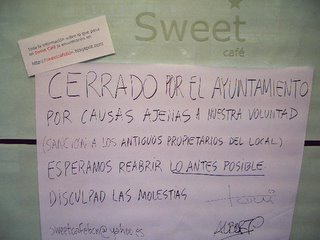 Sweet
café
Toda la información sobre lo que pasa
en Sweet Café la encontrarás en
http://sweetcafebcn.blogspot.com
CERRADO POR EL AYUNTAMIENTO
POR CAUSAS AJENAS A NUESTRA VOLUNTAD
(SANCIÓN A LOS ANTIGUOS PROPIETARIOS DEL LOCAL)
ESPERAMOS REABRIR LO ANTES POSIBLE
DISCULPAD LAS MOLESTIAS
sweetcafebcn@yahoo.es